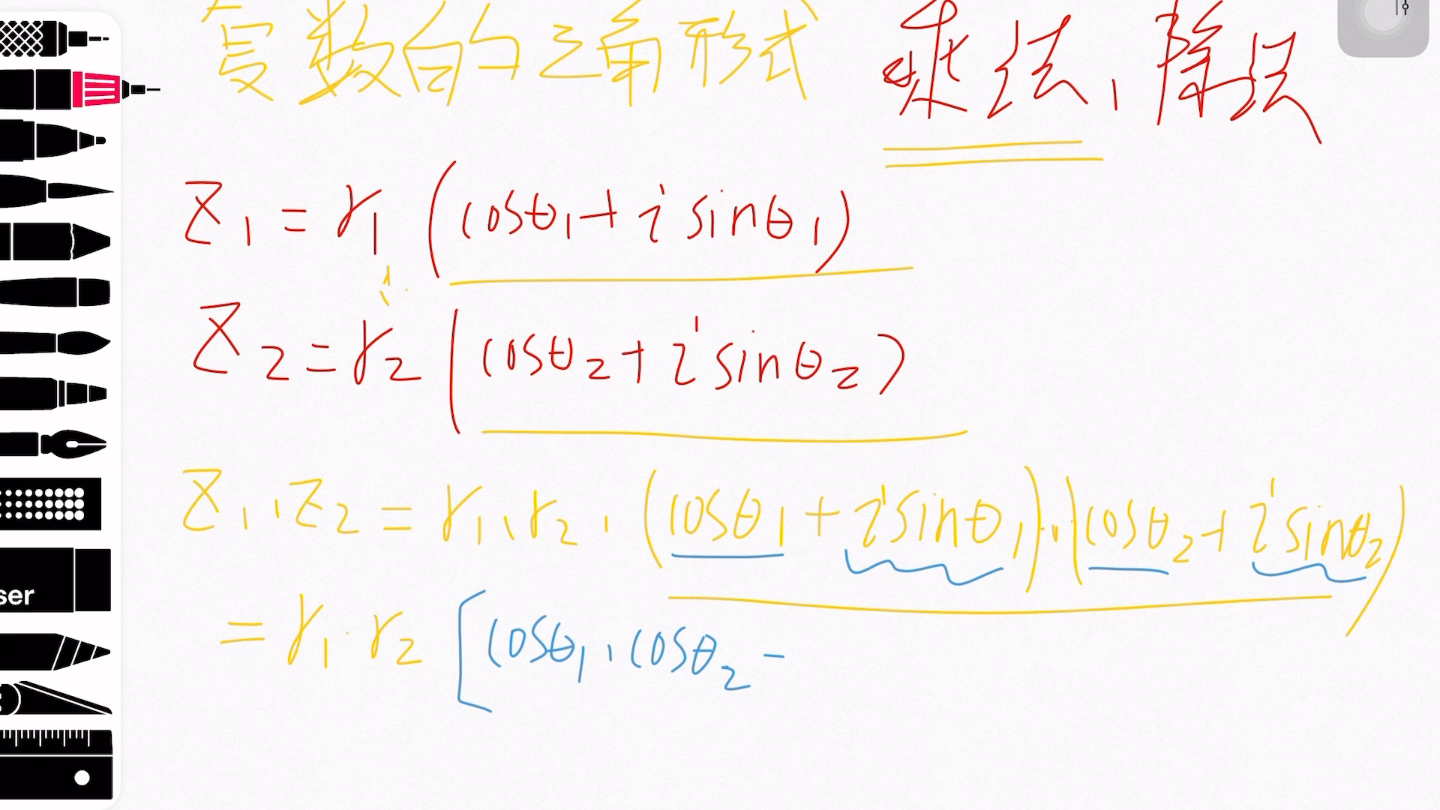 复数的三角形式 乘法,除法
Z₁ = r₁ (cosθ₁ + i sinθ₁)
Z₂ = r₂ (cosθ₂ + i sinθ₂)
Z₁·Z₂ = r₁·r₂·(cosθ₁ + i sinθ₁)·(cosθ₂ + i sinθ₂)
ser
= r₁·r₂ [cosθ₁·cosθ₂ −